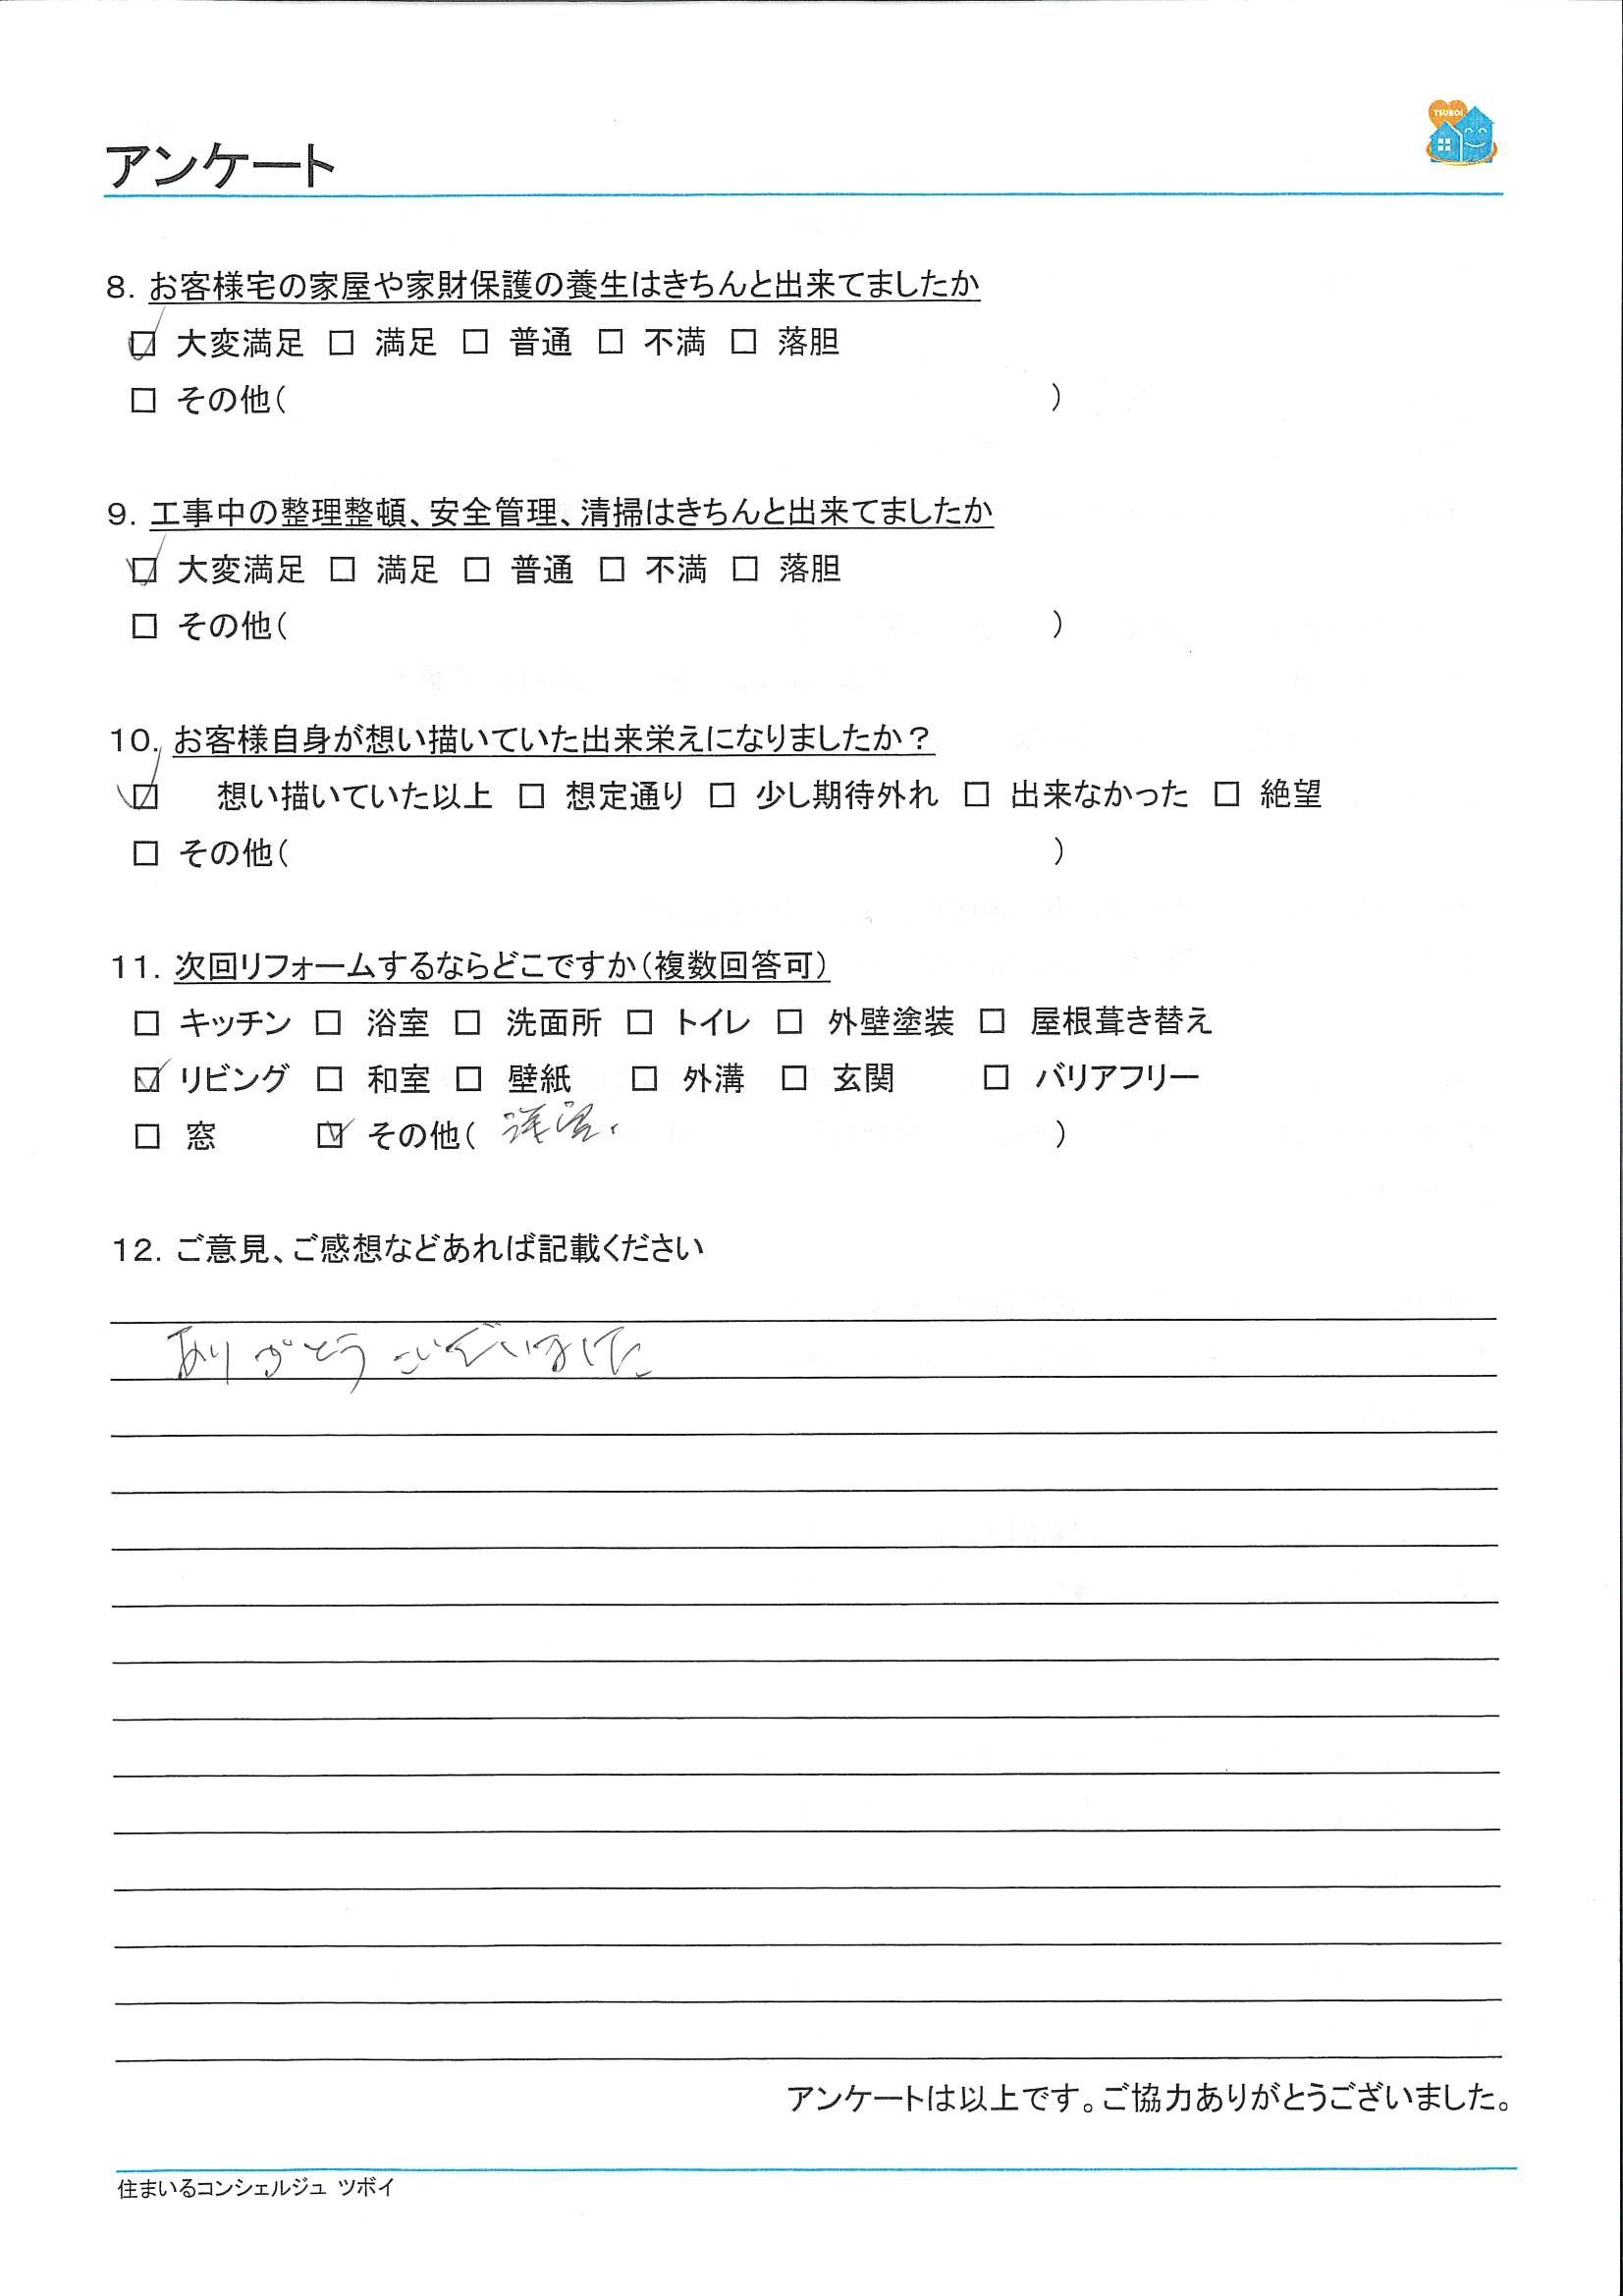 TSUBOI
アンケート
8. お客様宅の家屋や家財保護の養生はきちんと出来てましたか
☑ 大変満足 □ 満足 □ 普通 □ 不満 □ 落胆
□ その他( )
9. 工事中の整理整頓、安全管理、清掃はきちんと出来てましたか
☑ 大変満足 □ 満足 □ 普通 □ 不満 □ 落胆
□ その他( )
10. お客様自身が想い描いていた出来栄えになりましたか？
☑ 想い描いていた以上 □ 想定通り □ 少し期待外れ □ 出来なかった □ 絶望
□ その他( )
11. 次回リフォームするならどこですか（複数回答可）
□ キッチン □ 浴室 □ 洗面所 □ トイレ □ 外壁塗装 □ 屋根葺き替え
☑ リビング □ 和室 □ 壁紙 □ 外溝 □ 玄関 □ バリアフリー
□ 窓 ☑ その他( 洋室. )
12. ご意見、ご感想などあれば記載ください
ありがとうございました
アンケートは以上です。ご協力ありがとうございました。
住まいるコンシェルジュ ツボイ